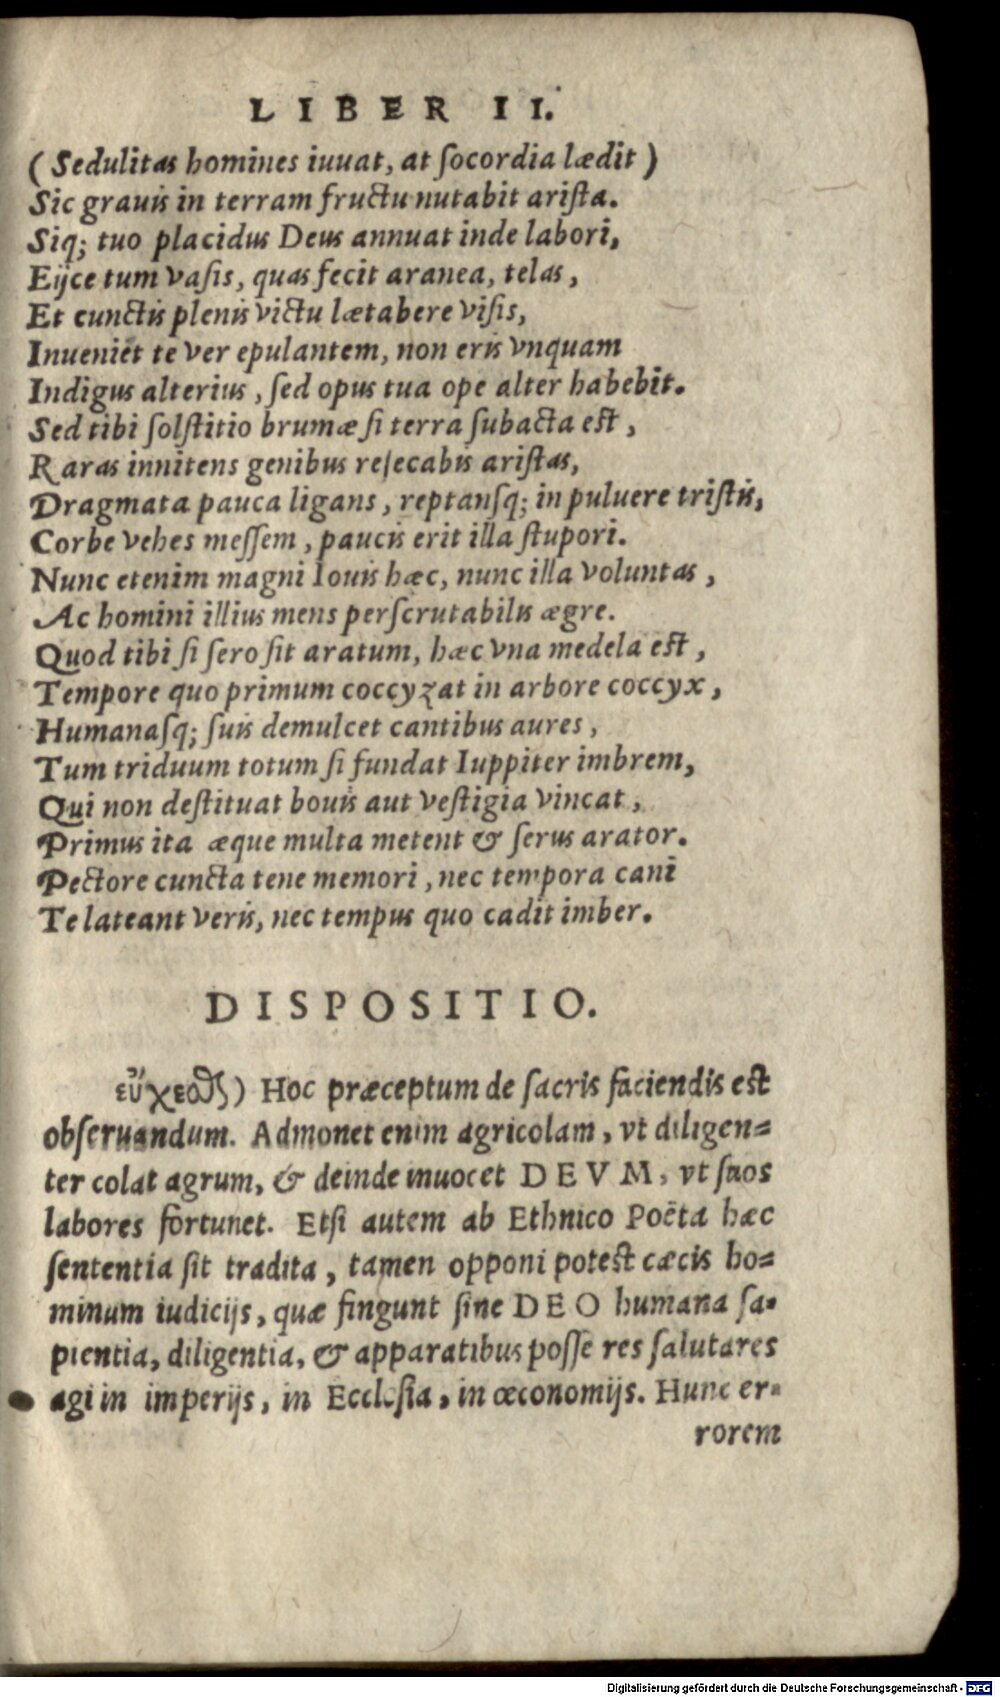 LIBER II.
(Sedulitas homines iuuat, at ſocordia lædit)
Sic grauis in terram fructu nutabit ariſta.
Siq; tuo placidus Deus annuat inde labori,
Eijce tum vaſis, quas fecit aranea, telas,
Et cunctis plenis victu lætabere viſis,
Inueniét te ver epulantem, non eris vnquam
Indigus alterius, ſed opus tua ope alter habebit.
Sed tibi ſolſtitio brumæ ſi terra ſubacta eſt,
Raras innitens genibus reſecabis ariſtas,
Dragmata pauca ligans, reptanſq; in puluere triſtis,
Corbe vehes meſſem, paucis erit illa ſtupori.
Nunc etenim magni Iouis hæc, nunc illa voluntas,
Ac homini illius mens perſcrutabilis ægre.
Quod tibi ſi ſero ſit aratum, hæc vna medela eſt,
Tempore quo primum coccyzat in arbore coccyx,
Humanaſq; ſuis demulcet cantibus aures,
Tum triduum totum ſi fundat Iuppiter imbrem,
Qui non deſtituat bouis aut veſtigia vincat,
Primus ita æque multa metent & ſerus arator.
Pectore cuncta tene memori, nec tempora cani
Te lateant veris, nec tempus quo cadit imber.
DISPOSITIO.
εὔχεσθς) Hoc præceptum de ſacris faciendis eſt
obſeruandum. Admonet enim agricolam, vt diligen=
ter colat agrum, & deinde inuocet DEVM, vt ſuos
labores fortunet. Etſi autem ab Ethnico Poëta hæc
ſententia ſit tradita, tamen opponi poteſt cæcis ho=
minum iudicijs, quæ fingunt ſine DEO humana ſa=
pientia, diligentia, & apparatibus poſſe res ſalutares
agi in imperijs, in Eccleſia, in œconomijs. Hunc er=
rorem
Digitalisierung gefördert durch die Deutsche Forschungsgemeinschaft - DFG